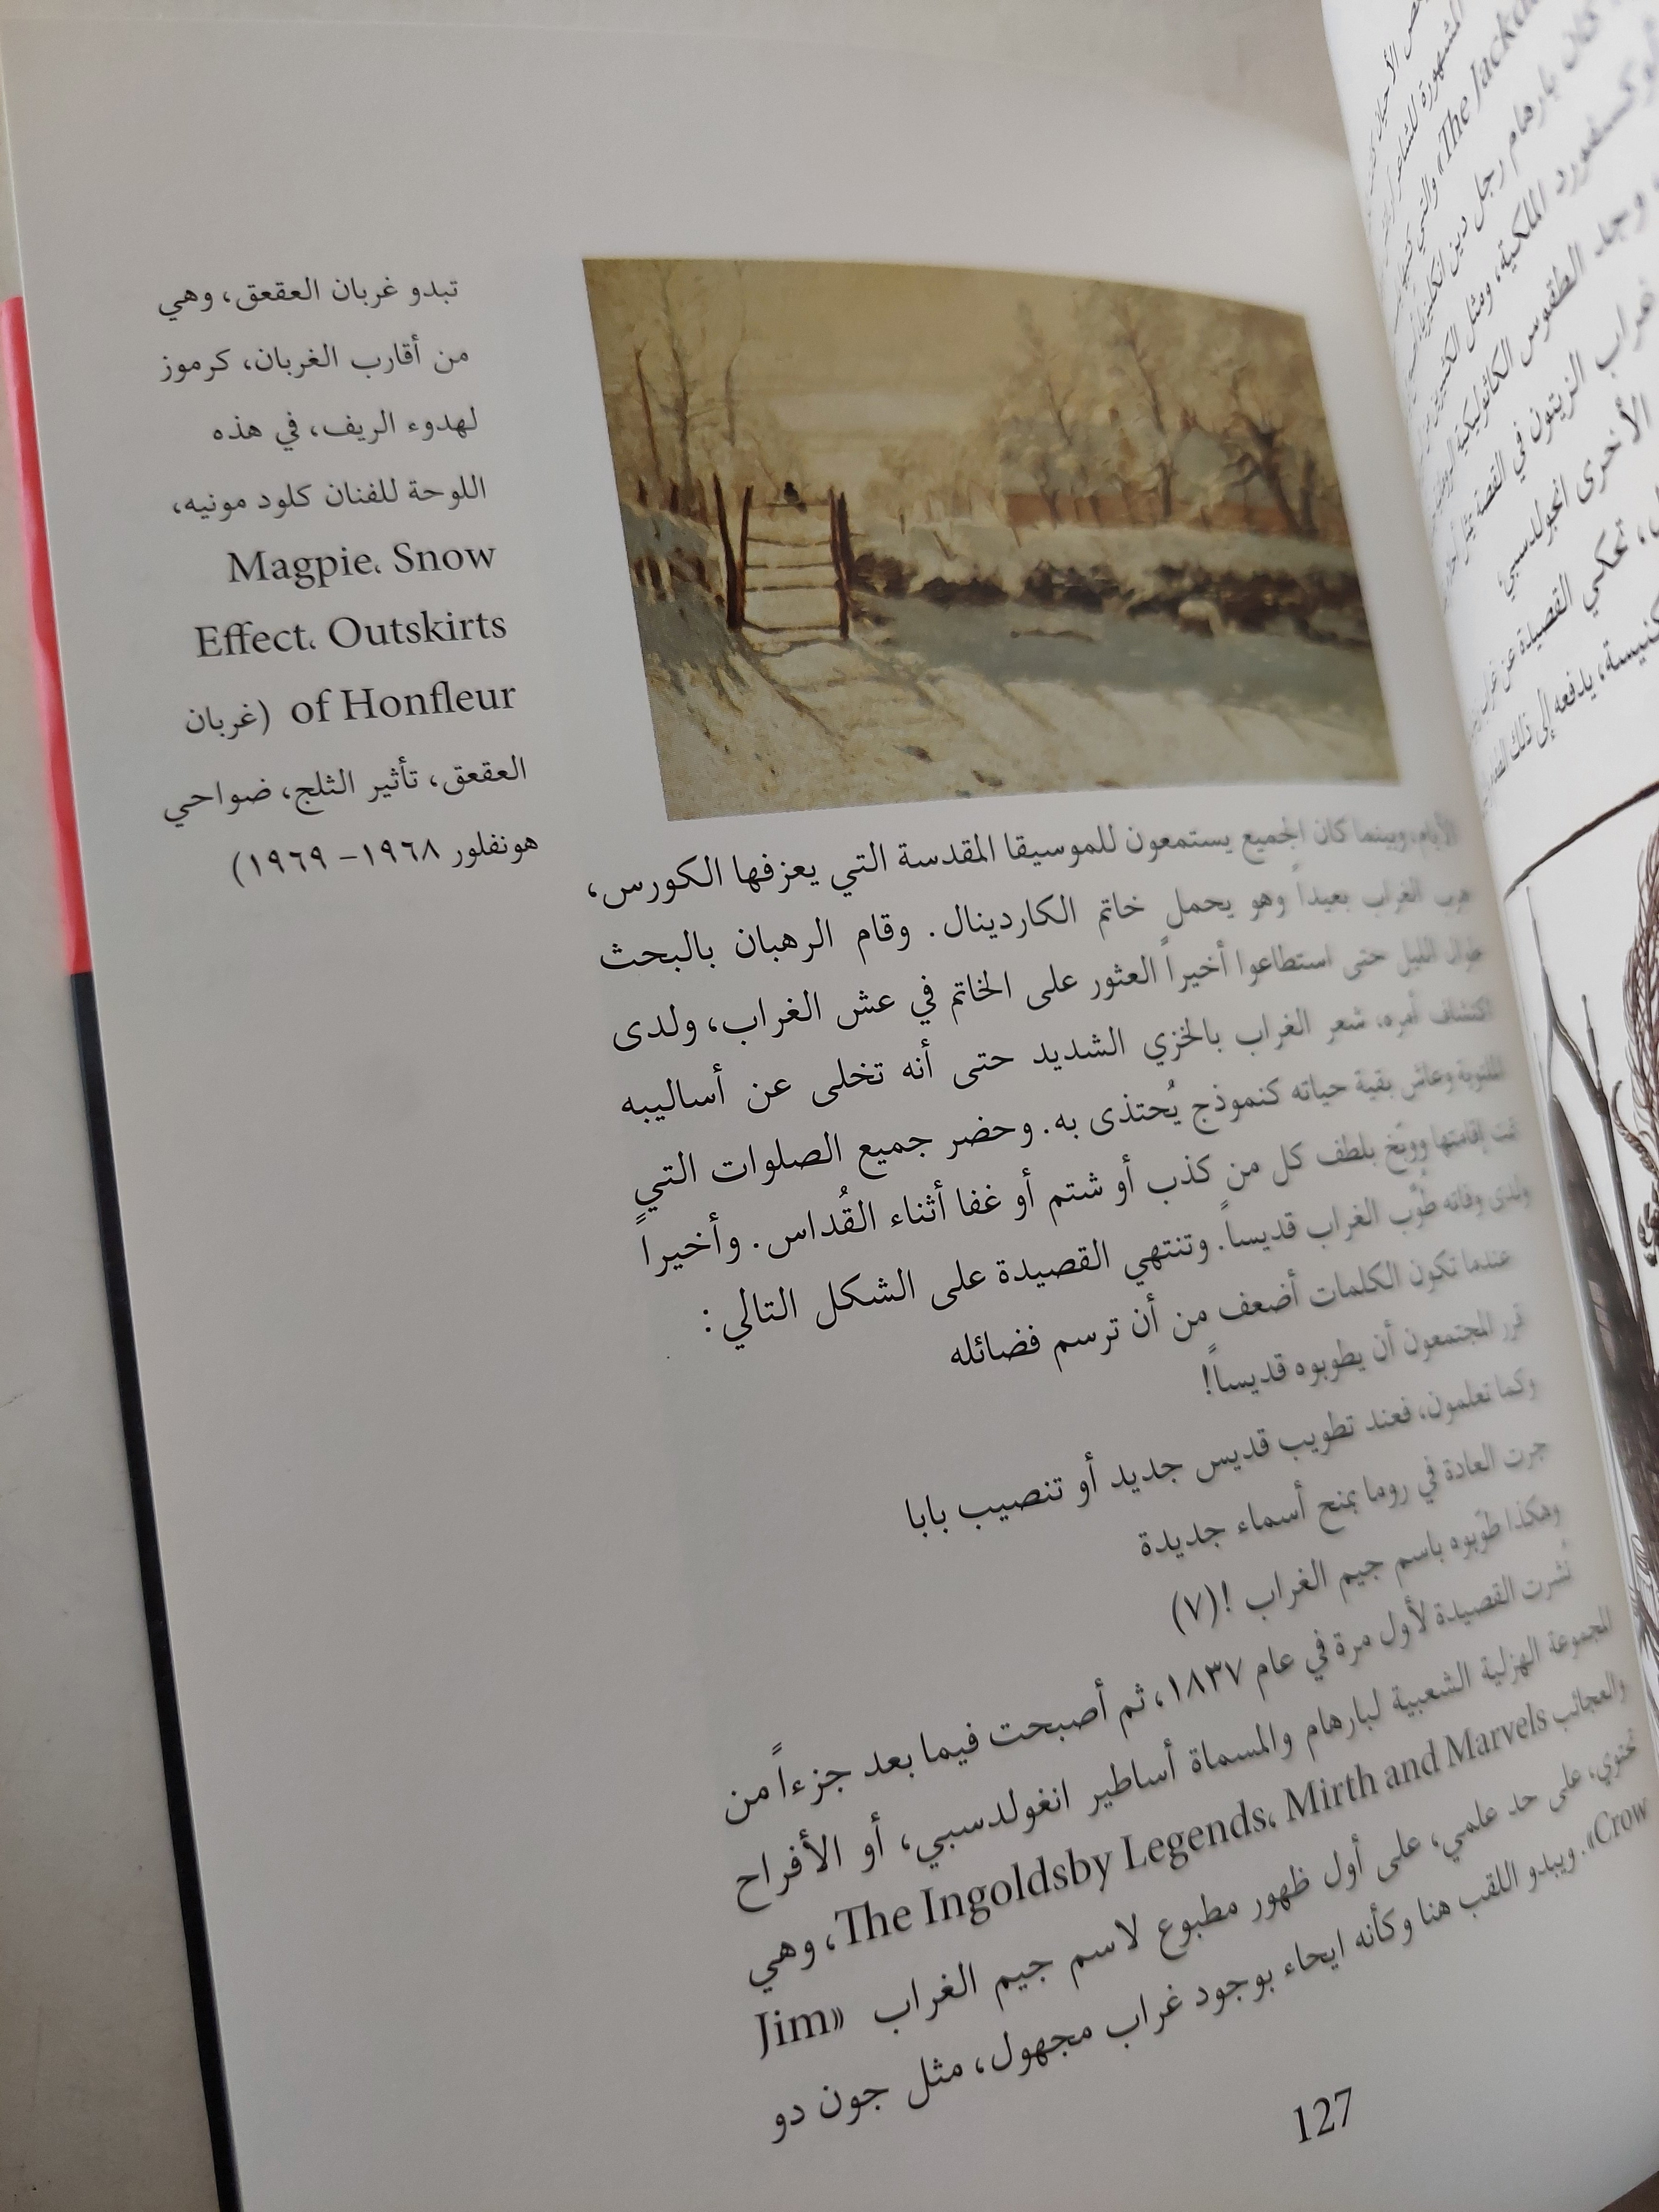 تبدو غربان العقعق، وهي
من أقارب الغربان، كرموز
لهدوء الريف، في هذه
اللوحة للفنان كلود مونيه،
Magpie، Snow
Effect، Outskirts
of Honfleur (غربان
العقعق، تأثير الثلج، ضواحي
هونفلور ١٩٦٨– ١٩٦٩)
الأيام، وبينما كان الجميع يستمعون للموسيقا المقدسة التي يعزفها الكورس،
هرب الغراب بعيداً وهو يحمل خاتم الكاردينال. وقام الرهبان بالبحث
طوال الليل حتى استطاعوا أخيراً العثور على الخاتم في عش الغراب، ولدى
اكتشاف أمره، شعر الغراب بالخزي الشديد حتى أنه تخلى عن أساليبه
الملتوية وعاش بقية حياته كنموذج يُحتذى به. وحضر جميع الصلوات التي
تمت إقامتها ووبّخ بلطف كل من كذب أو شتم أو غفا أثناء القُداس. وأخيراً
ولدى وفاته طوّب الغراب قديساً. وتنتهي القصيدة على الشكل التالي:
عندما تكون الكلمات أضعف من أن ترسم فضائله
قرر المجتمعون أن يطوبوه قديساً!
وكما تعلمون، فعند تطويب قديس جديد أو تنصيب بابا
جرت العادة في روما بمنح أسماء جديدة
وهكذا طوّبوه باسم جيم الغراب !(٧)
نُشرت القصيدة لأول مرة في عام ١٨٣٧، ثم أصبحت فيما بعد جزءاً من
المجموعة الهزلية الشعبية لبارهام والمسماة أساطير انغولدسبي، أو الأفراح
والعجائب The Ingoldsby Legends، Mirth and Marvels، وهي
تحتوي، على حد علمي، على أول ظهور مطبوع لاسم جيم الغراب «Jim
Crow». ويبدو اللقب هنا وكأنه ايحاء بوجود غراب مجهول، مثل جون دو
127